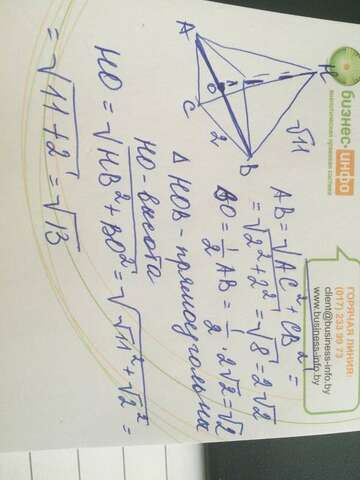 A
C
O
B
H
2
√11
AB = √AC² + CB² =
= √2² + 2² = √8 = 2√2
BO = 1/2 AB = 1/2 · 2√2 = √2
△ HOB - прямоугольник
HO - высота
HO = √HB² + BO² = √√11² + √2² =
= √11 + 2 = √13
бизнес-инфо
аналитическая правовая система
ГОРЯЧАЯ ЛИНИЯ:
(017) 233 99 73
client@business-info.by
www.business-info.by